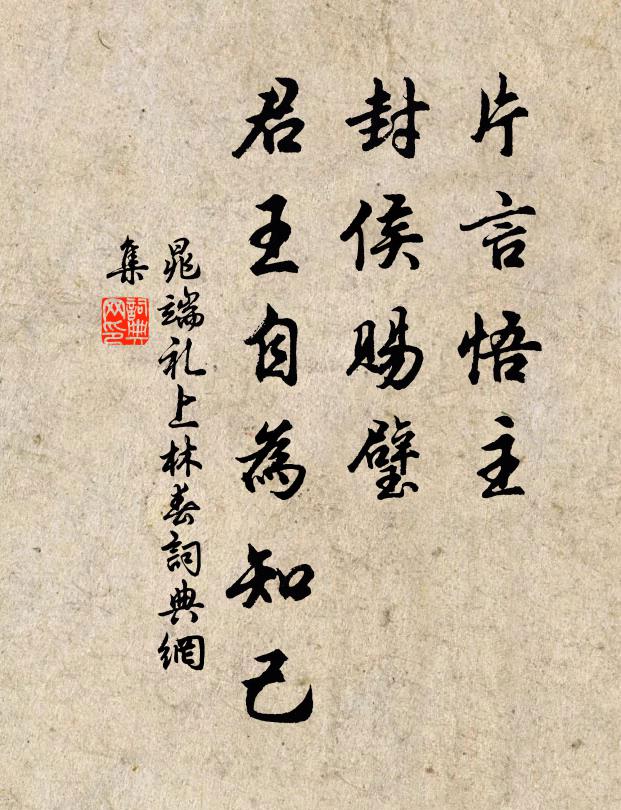 片言悟主
封侯賜璧
君王自為知己
晁端礼上林春詞典網
集
詞典
网印